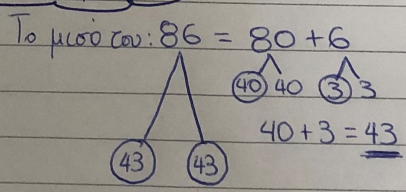 Το μισό του: 86 = 80 + 6
40 40 3 3
40 + 3 = 43
43 43